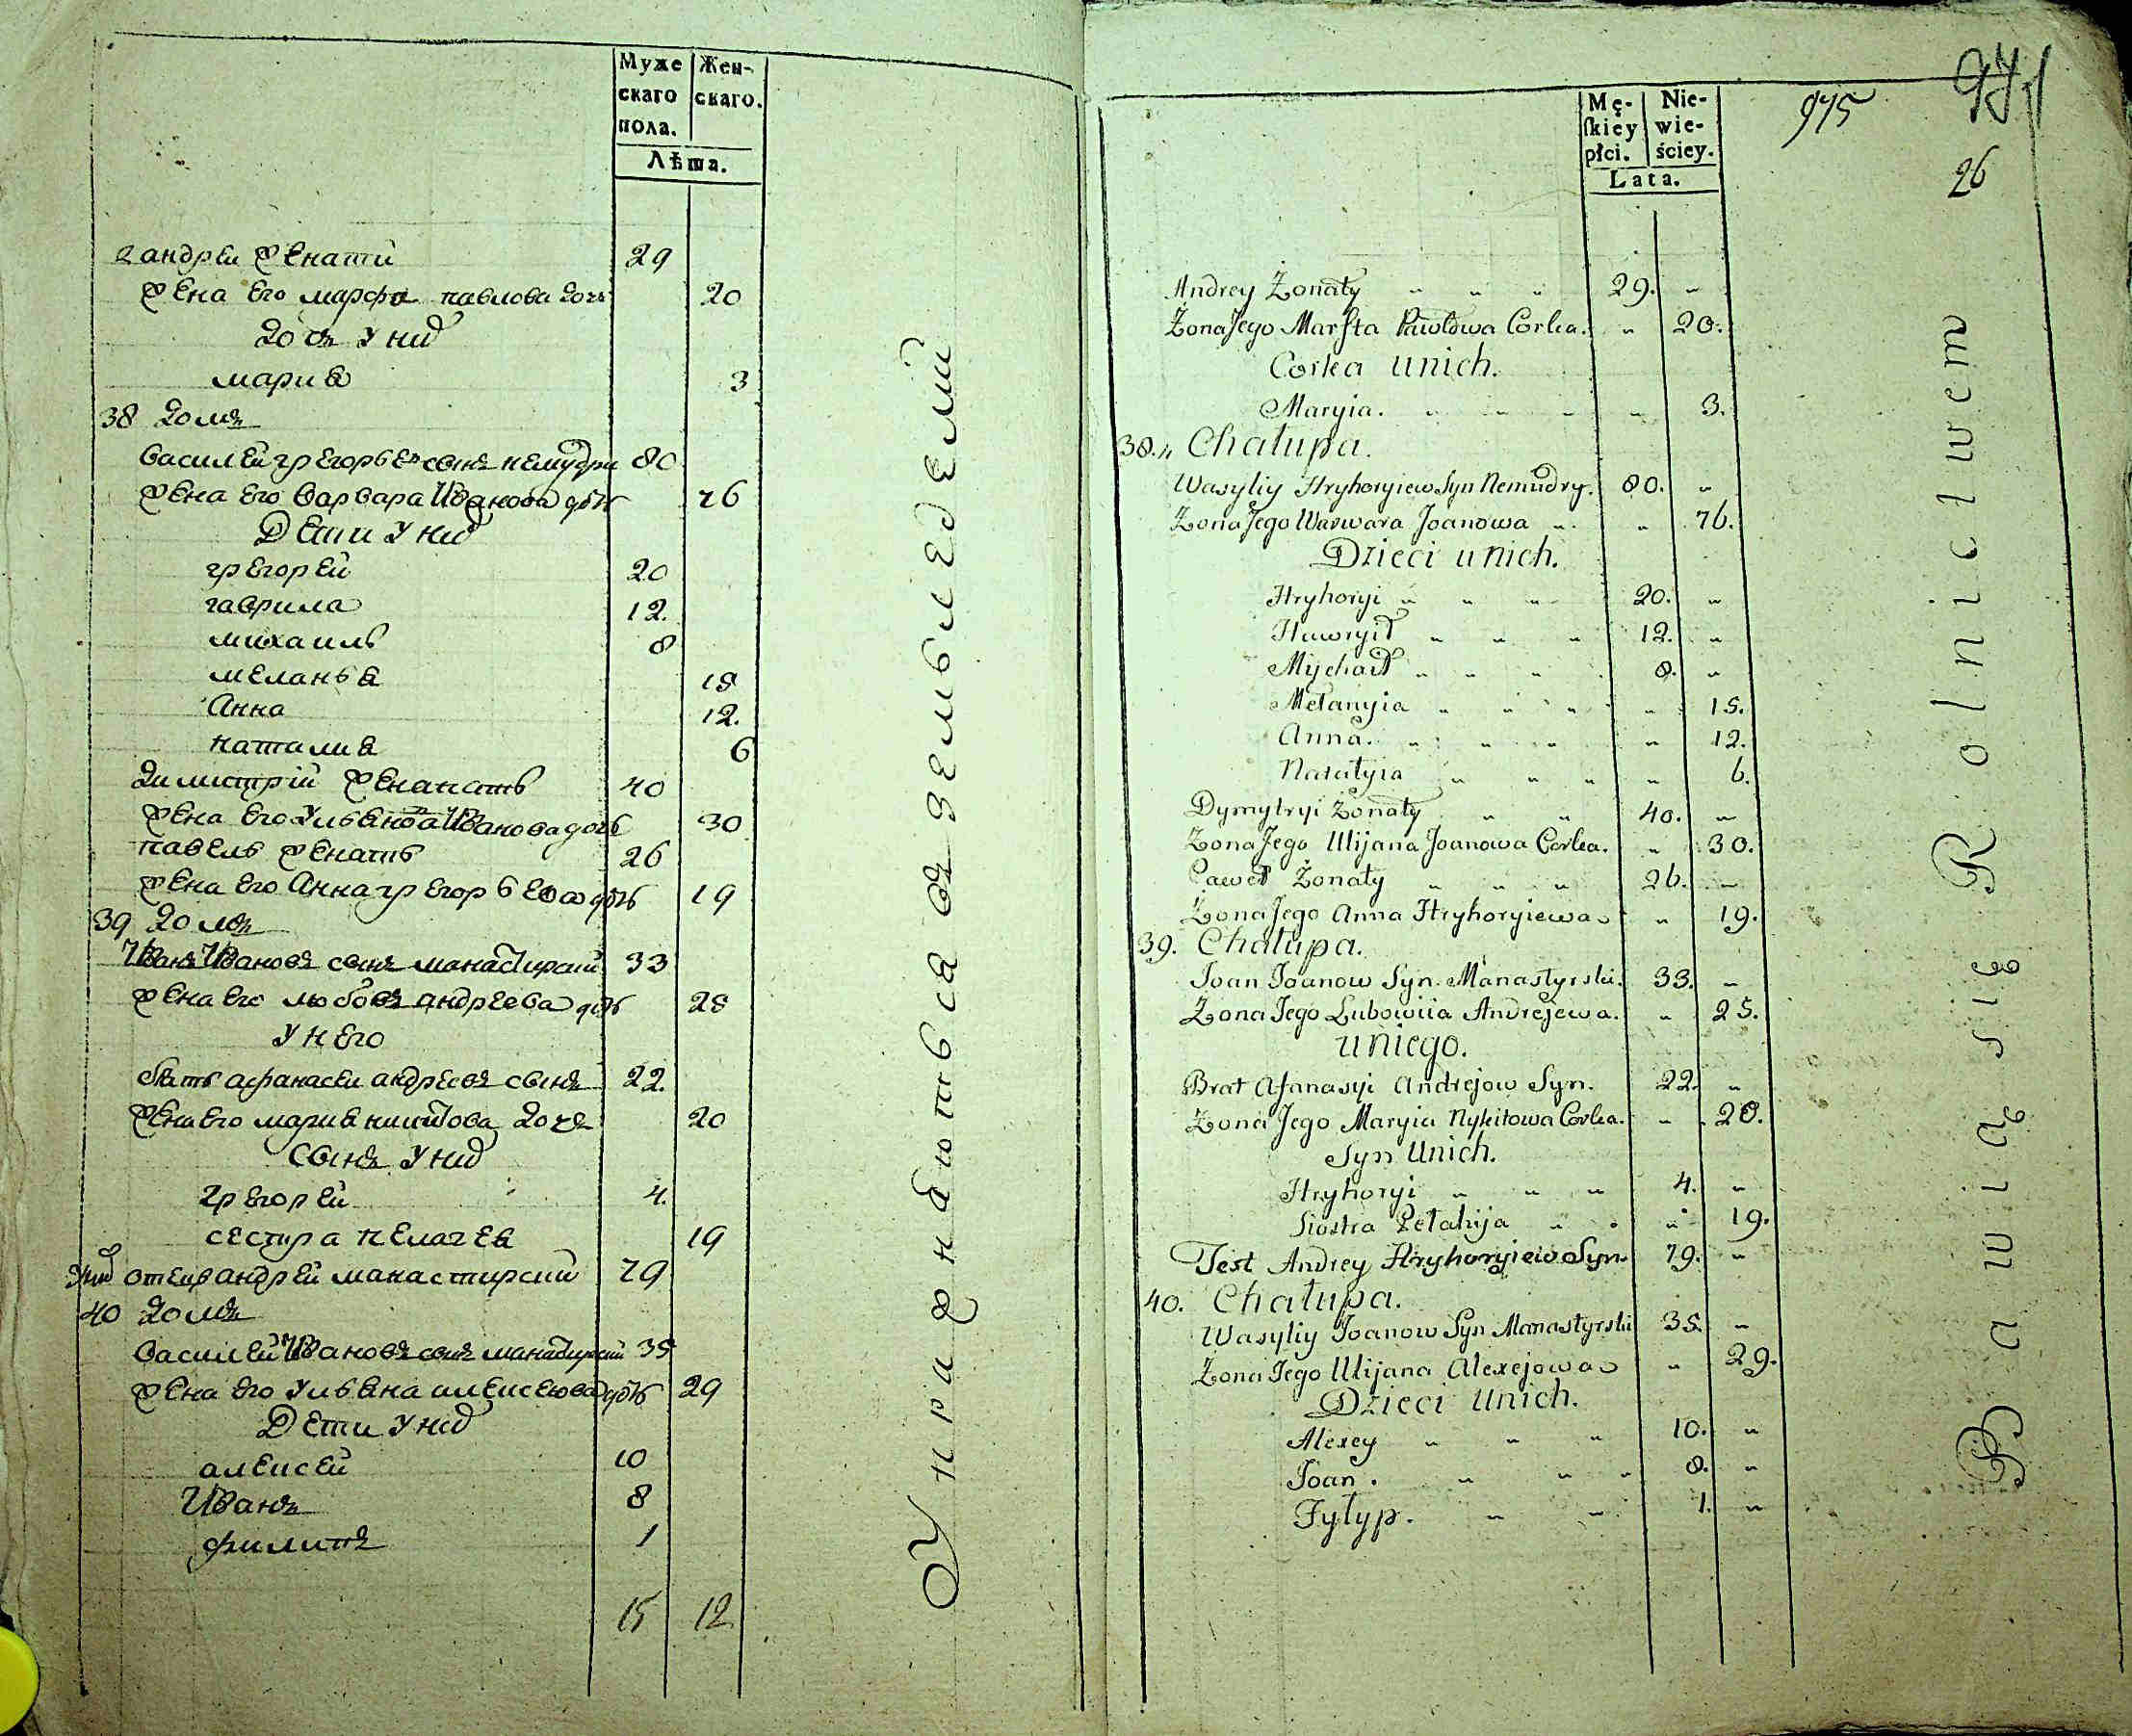 Муже
скаго
пола.
Жен-
скаго.
Лѣта.
2 андрей женатй 29
жена его марфа павлова дочь 20
дочь у них
мария 3
38 домъ
василей грегорьев сынъ немудри 80
жена его варвара Иванова дочь 76
Дети у них
грегорей 20
гаврила 12.
михаиль 8
меланья 15
Анна 12.
наталия 6
димитрій женать 40
жена его Ульяна Иванова дочь 30
павель женать 26
жена его Анна грегорьева дочь 19
39 домъ
Иванъ Ивановъ сынъ манастирский 33
жена его любовъ андреева дочь 25
у него
зять афанасеи андреевъ сынъ 22.
жена его мария никитова дочъ 20
сынъ у них
грегорей 4.
сестра пелагея 19
у них отецъ андрей манастирский 79
40 домъ
василей Ивановъ сынъ манастирский 35
жена его Ульяна алексеева дочь 29
Дети у них
алексей 10
Иванъ 8
филипъ 1
15 12
Упражняюпься въ земьледелий
Mę-
ſkiey
płci.
Nie-
wie-
ściey.
Lata.
975
971
26
Andrey Żonaty „ „ „ 29. „
Żona Jego Marfta Pawłowa Corka. „ 20.
Corka unich.
Maryia. „ „ „ „ 3.
38. „ Chałupa.
Wasyliy Hryhoryiew Syn Nemudry. 80. „
Żona Jego Warwara Joanowa „ „ 76.
Dzieci unich.
Hryhoryi „ „ „ 20. „
Hawryił „ „ „ 12. „
Mychaił „ „ „ 8. „
Mełanyia „ „ „ „ 15.
Anna. „ „ „ „ 12.
Natałyia „ „ „ „ 6.
Dymytryi Żonaty „ „ 40. „
Żona Jego Ulijana Joanowa Corka. „ 30.
Paweł Żonaty „ „ „ 26. „
Żona Jego Anna Hryhoryiewa „ 19.
39. Chałupa.
Joan Joanow Syn Manastyrski. 33. „
Żona Jego Lubowiia Andrejewa. „ 25.
uniego.
Brat Afanasyi Andrejow Syn. 22. „
Żona Jego Maryia Nykitowa Corka. „ 20.
Syn Unich.
Hryhoryi „ „ „ 4. „
Siostra Pełahija „ „ „ 19.
Test Andrey Hryhoryiew Syn 79. „
40. Chałupa.
Wasyliy Joanow Syn Manastyrski 35. „
Żona Jego Ulijana Alexejowa „ 29.
Dzieci Unich.
Alexey „ „ „ 10. „
Joan. „ „ „ 8. „
Fyłyp. „ „ 1. „
Bawią się Rolnictwem